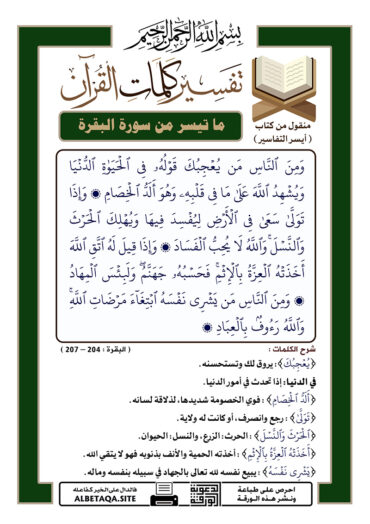 بِسْمِ اللَّهِ الرَّحْمَٰنِ الرَّحِيمِ
تفسير كلمات القرآن
ما تيسر من سورة البقرة
منقول من كتاب
( أيسر التفاسير )
وَمِنَ ٱلنَّاسِ مَن يُعْجِبُكَ قَوْلُهُۥ فِى ٱلْحَيَوٰةِ ٱلدُّنْيَا
وَيُشْهِدُ ٱللَّهَ عَلَىٰ مَا فِى قَلْبِهِۦ وَهُوَ أَلَدُّ ٱلْخِصَامِ ۞ وَإِذَا
تَوَلَّىٰ سَعَىٰ فِى ٱلْأَرْضِ لِيُفْسِدَ فِيهَا وَيُهْلِكَ ٱلْحَرْثَ
وَٱلنَّسْلَ ۗ وَٱللَّهُ لَا يُحِبُّ ٱلْفَسَادَ ۞ وَإِذَا قِيلَ لَهُ ٱتَّقِ ٱللَّهَ
أَخَذَتْهُ ٱلْعِزَّةُ بِٱلْإِثْمِ ۚ فَحَسْبُهُۥ جَهَنَّمُ ۚ وَلَبِئْسَ ٱلْمِهَادُ
۞ وَمِنَ ٱلنَّاسِ مَن يَشْرِى نَفْسَهُ ٱبْتِغَآءَ مَرْضَاتِ ٱللَّهِ ۗ
وَٱللَّهُ رَءُوفٌۢ بِٱلْعِبَادِ ۞
شرح الكلمات :
( البقرة : 204 – 207 )
﴿يُعْجِبُكَ﴾ : يروق لك وتستحسنه.
في الدنيا: إذا تحدث في أمور الدنيا.
﴿أَلَدُّ ٱلْخِصَامِ﴾ : قوي الخصومة شديدها، لذلاقة لسانه.
﴿تَوَلَّىٰ﴾ : رجع وانصرف، أو كانت له ولاية.
﴿ٱلْحَرْثَ وَٱلنَّسْلَ﴾ : الحرث: الزرع، والنسل: الحيوان.
﴿أَخَذَتْهُ ٱلْعِزَّةُ بِٱلْإِثْمِ﴾ : أخذته الحمية والأنف بذنوبه فهو لا يتقي الله.
﴿يَشْرِى نَفْسَهُ﴾ : يبيع نفسه لله تعالى بالجهاد في سبيله بنفسه وماله.
احرص على طباعة
ونشر هذه الورقة
فالدال على الخير كفاعله
ALBETAQA.SITE